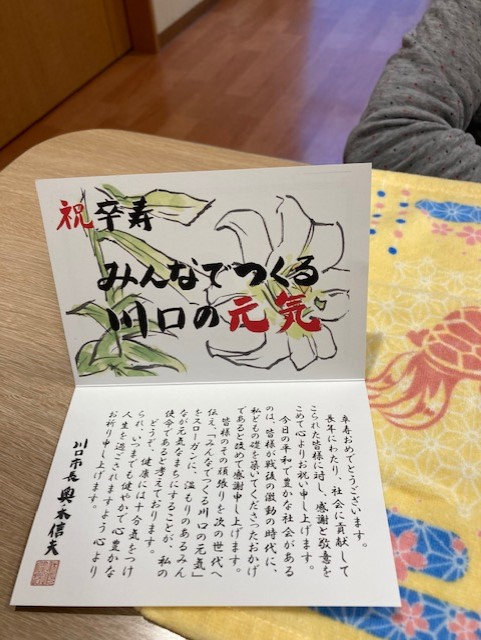 祝卒寿
みんなでつくる
川口の元気
卒寿おめでとうございます。
長年にわたり、社会に貢献して
こられた皆様に対し、感謝と敬意を
こめて心よりお祝い申し上げます。
今日の平和で豊かな社会がある
のは、皆様が戦後の激動の時代に、
私どもの礎を築いてくださったおかげ
であると改めて感謝申し上げます。
皆様のその頑張りを次の世代へ
伝え、「みんなでつくる川口の元気」
をスローガンに、温もりのあるみん
なが元気なまちにすることが、私の
使命であると考えております。
どうぞ、健康には十分気をつけ
られ、いつまでも健やかで心豊かな
人生を過ごされますよう心より
お祈り申し上げます。
川口市長 奥ノ木信夫